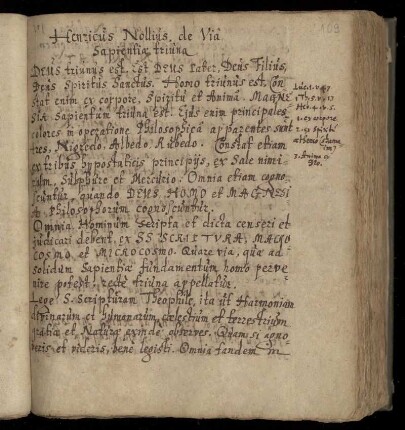 Henricus Nollius, de Via
Sapientiæ triuna
DEUS triunus est, Est DEUS Pater, Deus Filius,
Deus Spiritus Sanctus. Homo triunus est, Con
stat enim ex corpore, Spiritu et Anima. MAGNE
SIA Sapientum triuna est. Ejus enim principales
colores in operatione Philosophica apparentes sunt
tres, Nigredo, Albedo, Rubedo. Constat etiam
ex tribus hypostaticis principijs, ex Sale nimi
rum, Sulphure et Mercurio. Omnia etiam cogno
scuntur, quando DEUS, HOMO et MAGNESI
A Philosophorum cognoscuntur.
Omnia Hominum Scripta et dicta censeri et
judicari debent, ex SS SCRIPTURA, MACRO
COSMO et MICROCOSMO. Quare via, quæ ad
solidum Sapientiæ fundamentum homo perve
nire potest, recte triuna appellatur.
Lege S. Scripturam Theophile, ita ut Harmoniam
divinarum et humanarum, cœlestium et terrestrium
gratiæ et Naturæ exinde observes. Quam si agno
veris et videris, bene legisti. Omnia tandem in
169
1. ex corpore
2. ex Spiritu
3. Anima